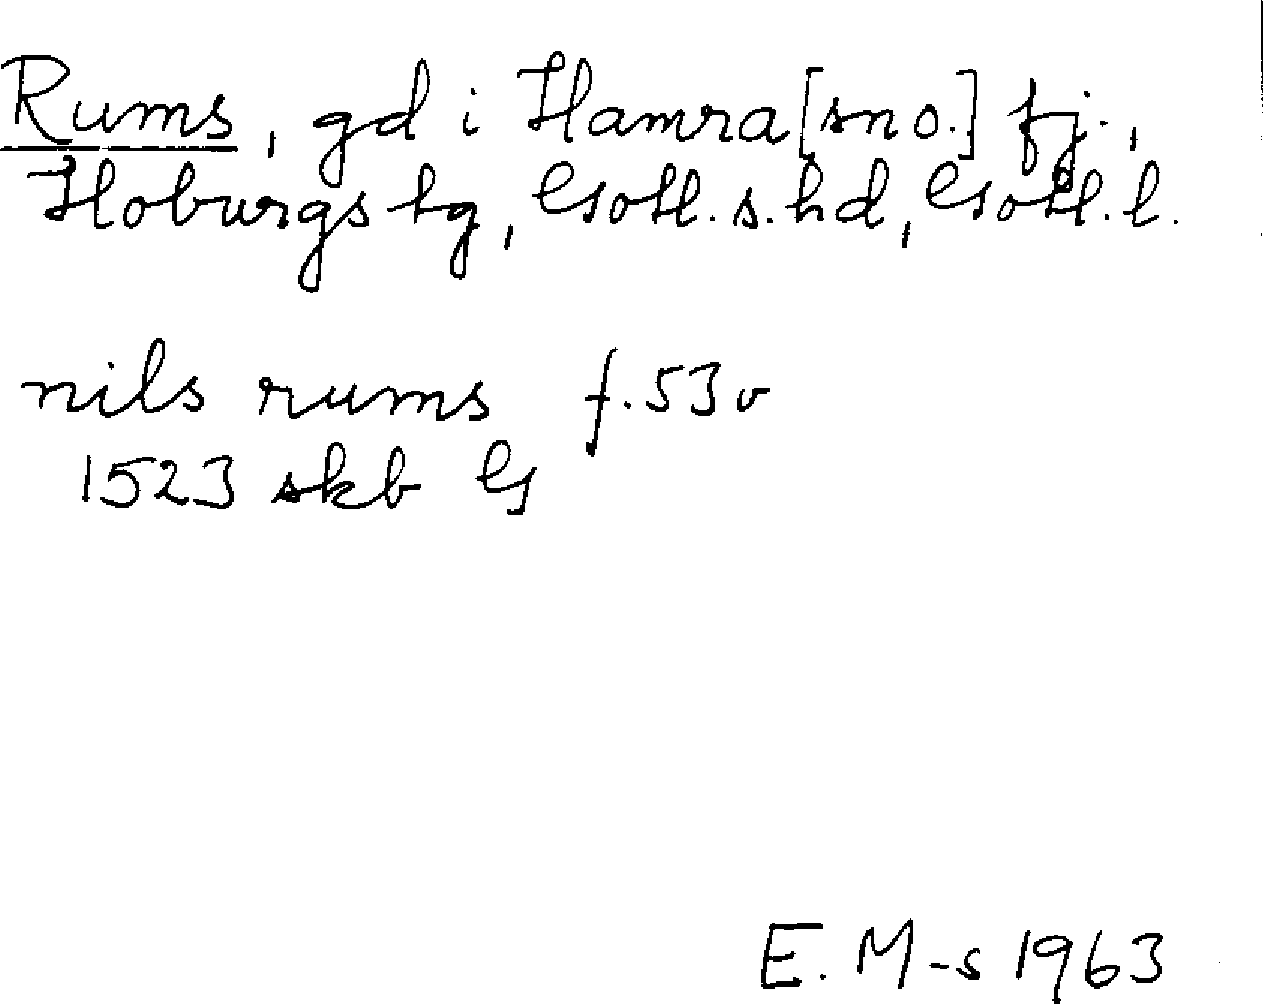 Rums, gd i Hamra [sn o.] fj.,
Hoburgs tg, Gotl. s. hd, Gotl. l.
nils rums f. 53 v
1523 skb G
E. M-s 1963